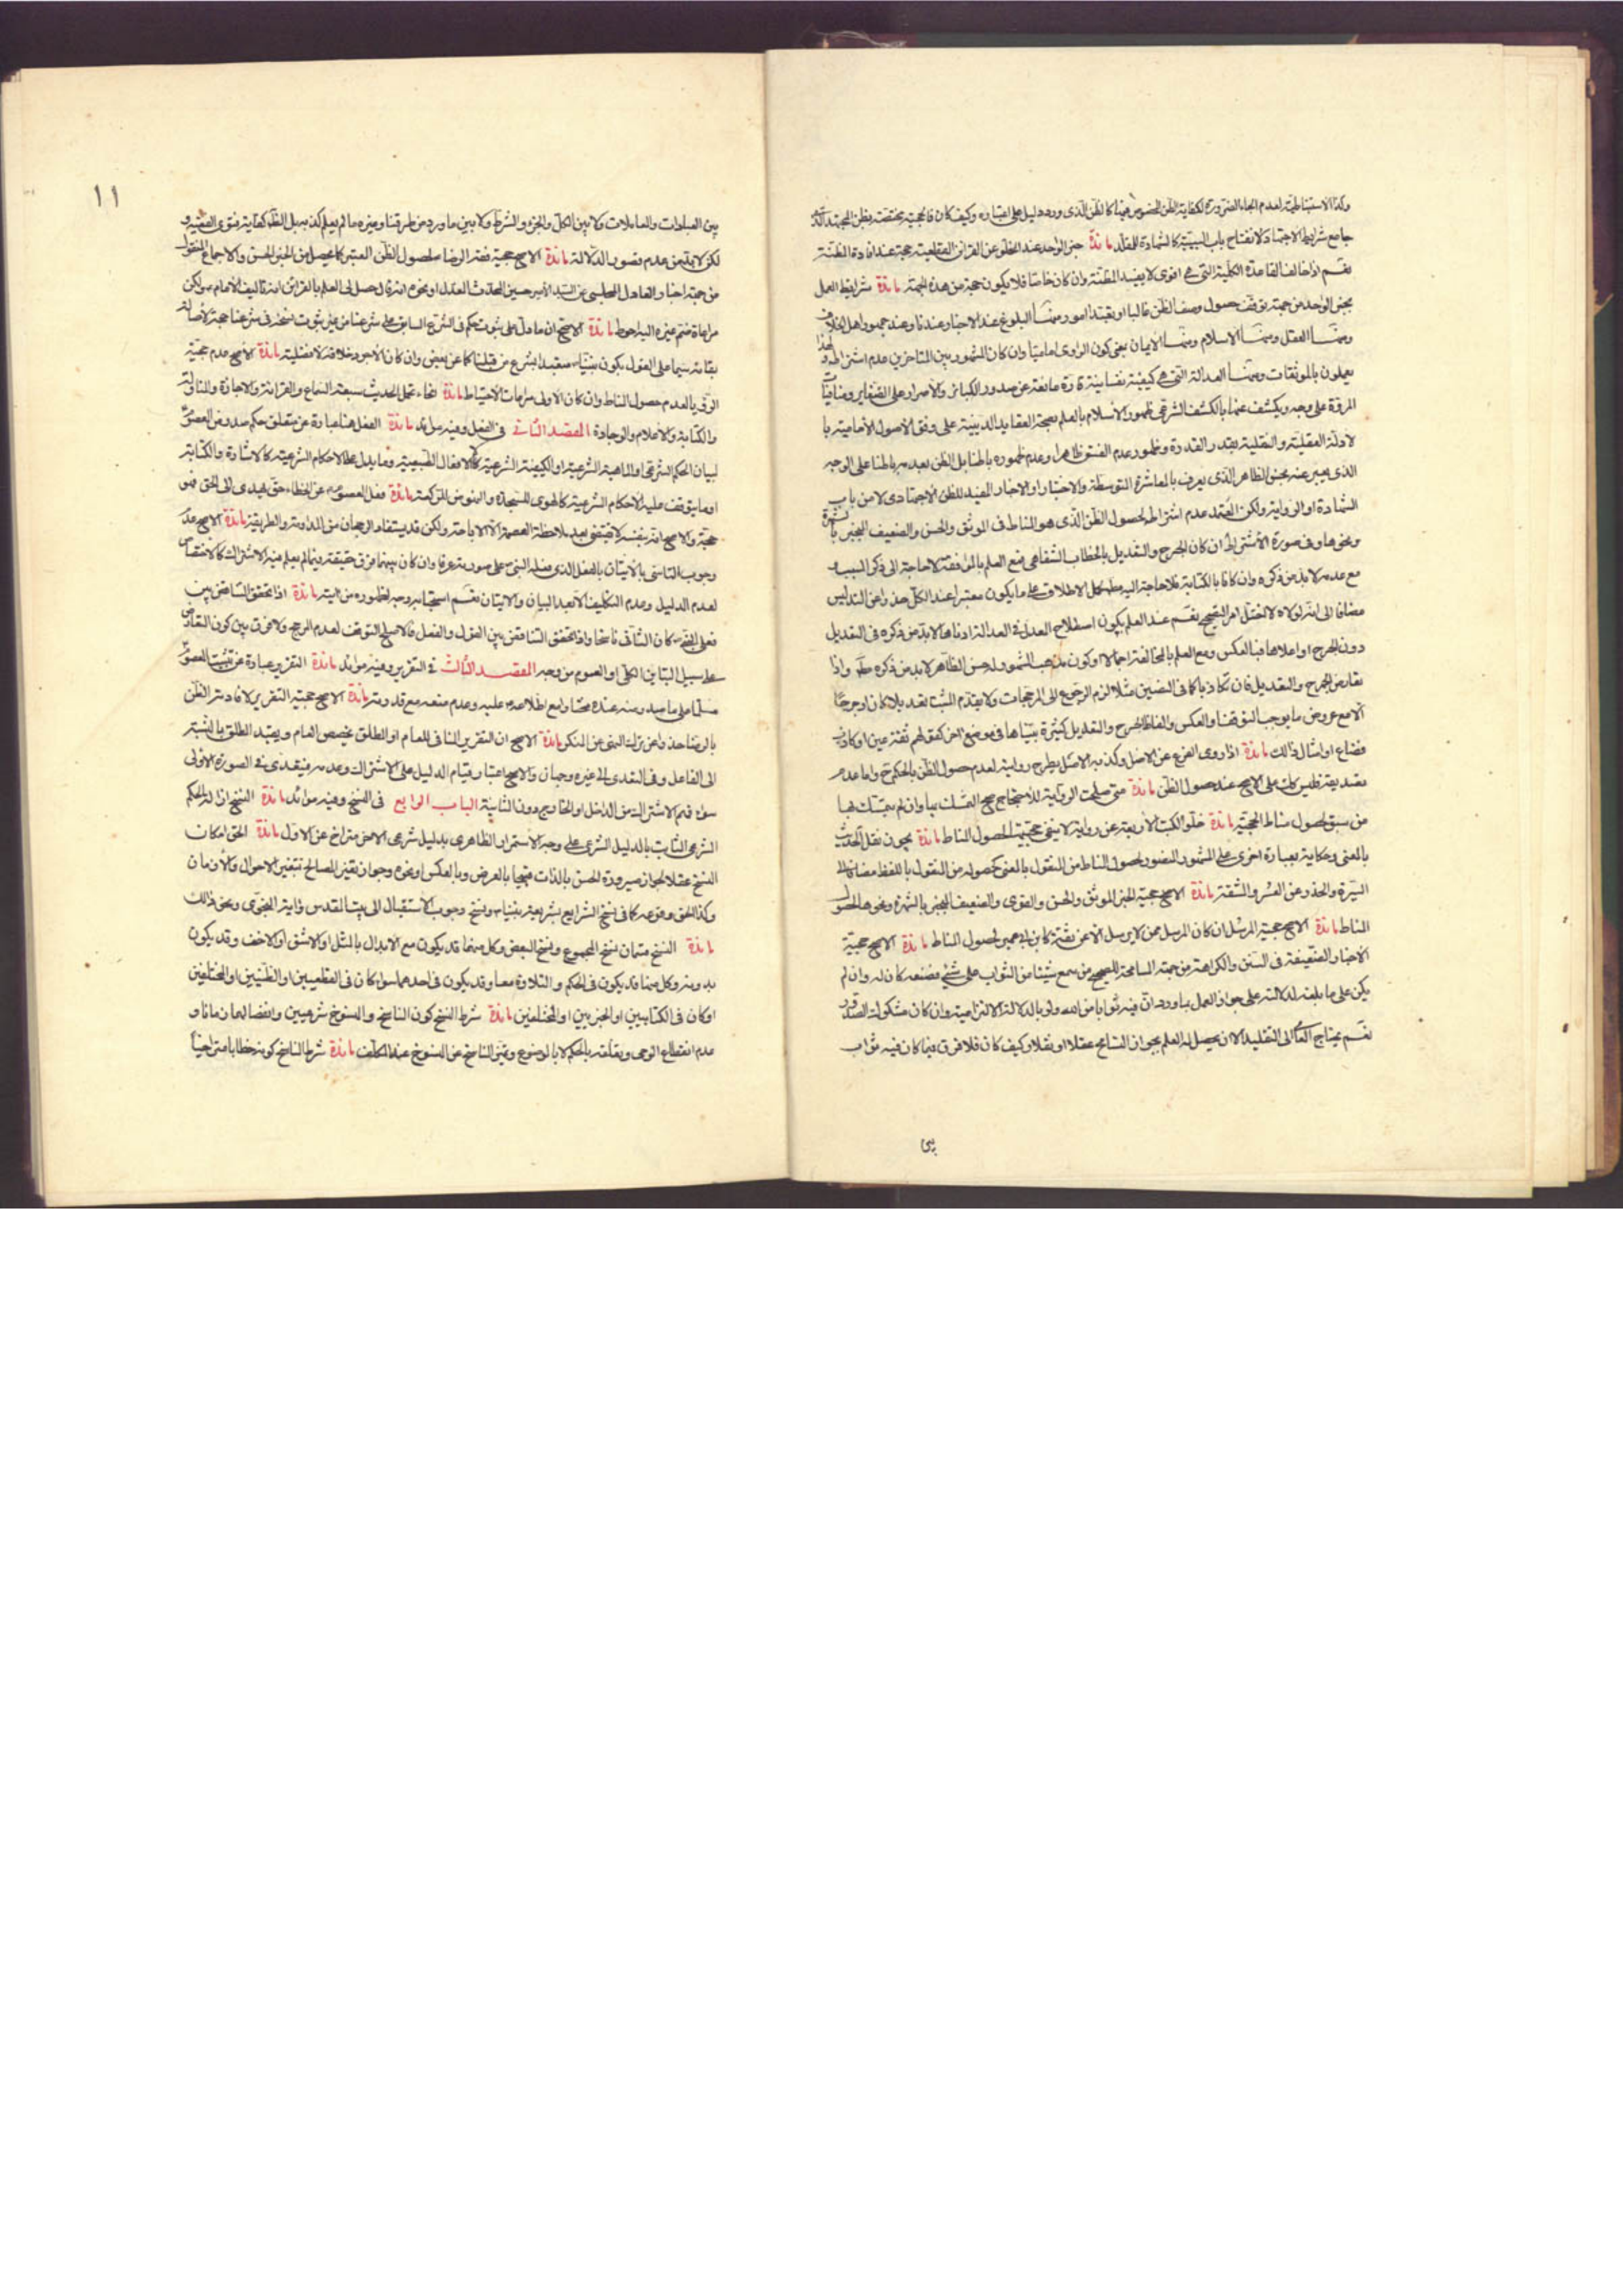 وكذا الاستنباطية لعدم الجاء الضرورة لكفاية الظن المخصوص هنا كالظن الذى ورد دليل على اعتباره وكيف كان فالحجية مختصة بظن المجتهد
جامع شرايط الاجتهاد لانفتاح باب البينة كالشهادة للمقلد مائدة خبر الواحد عند الخلو عن القراين القطعية حجة عند افادة المظنة
نعم اذا خالف القاعدة الكلية التى هى اقوى لا يفيد المظنة وان كان خاصا فلا يكون حجة من هذه الجهة مائدة شرايط العمل
بخبر الواحد من جهة توقف حصول وصف الظن غالبا او تعبدا امور ومنها البلوغ عند الاخبار عندنا وعند جمهور اهل الخلاف
ومنها العقل ومنها الاسلام ومنها الايمان بمعنى كون الراوى اماميا وان كان المشهور بين المتاخرين عدم اشتراطه ولهذا
يعملون بالموثقات ومنها العدالة التى هى كيفية نفسانية قارة مانعة عن صدور الكبائر والاصرار على الصغاير ومنافيات
المروة على وجه ويكشف عنها بالكشف الشرعى ظهور الاسلام بالعلم بصحة العقايد الدينية على وفق الاصول الامامية با
لادلة العقلية والنقلية بقدر القدرة وظهور عدم الفسق ظاهرا وعدم ظهوره باطنا بل الظن بعدمه باطنا على الوجه
الذى يعبر عنه بحسن الظاهر الذى يعرف بالمعاشرة المتوسطة والاختبار او الاخبار المفيد للظن الاجتهادى لا من باب
الشهادة او الرواية ولكن المعتمد عدم اشتراطه لحصول الظن الذى هو المناط فى الموثق والحسن والضعيف المنجبر بالشهرة
ونحوها وفى صورة الاشتراط ان كان الجرح والتعديل بالخطاب الشفاهى فمع العلم بالموافقة لا حاجة الى ذكر السبب و
مع عدمه لا بد من ذكره وان كانا بالكتابة فلا حاجة اليه لحمل كل الاطلاق على ما يكون معتبرا عند الكل حذرا عن التدليس
مضافا الى انه لولاه لاختل امر التصحيح نعم عند العلم بكون اصطلاح المعدل فى العدالة ادناها لا بد من ذكره فى التعديل
دون الجرح او اعلاها فبالعكس ومع العلم بالمخالفة اجمالا او كون مذهب المشهور له حسن الظاهر لا بد من ذكره واذا
تعارض الجرح والتعديل فان تكاذبا كما فى النصين مثلا لزم الرجوع الى المرجحات ولا يقدم المثبت تعبدا بلا كان ارجوحا
الا مع عروض ما يوجب التوقف او العكس والفاظ الجرح والتعديل كثيرة بيناها فى موضع اخر كقولهم ثقة عين او كاذب
وضاع او امثال ذالك مائدة اذا روى الفرع عن الاصل وكذبه الاصل يطرح رواية لعدم حصول الظن بالحكم ح واما عدم
من سبق لحصول مناط الحجية مائدة خلو الكتب الاربعة عن رواية لا ينفى حجيتها لحصول المناط مائدة يجوز نقل الحديث
بالمعنى وحكاية بعبارة اخرى على المشهور المنصور لحصول المناط من المنقول بالمعنى كحصوله من المنقول باللفظ مضافا الى
السيرة والحذر عن العسر والمشقة مائدة الاصح حجية الخبر الموثق والحسن والقوى والضعيف المنجبر بالشهرة ونحوها لحصول
المناط مائدة الاصح حجية المرسل ان كان المرسل ممن لا يرسل الا عن ثقة كابن ابى عمير لحصول المناط مائدة الاصح حجية
الاخبار الضعيفة فى السنن والكراهة من جهة المسامحة للصحيح من سمع شيئا من الثواب على شئ فصنعه كان له وان لم
يكن على ما بلغه لدلالته على جواز العمل بما ورد ان فيه ثوابا من الله ولو بالدلالة الالتزامية وان كان مشكوك الصدور
نعم يحتاج العامى الى التقليد الا ان يحصل له العلم بجواز التسامح عقلا او نقلا وكيف كان فلا فرق فيما كان فيه ثواب
بين
١١
بين العبادات والمعاملات ولا بين الكل والجزء والشرط ولا بين ما ورد من طرقنا وغيره ما لم يعلم كذبه بل الظاهر كفاية فتوى الفقيه و
لكن لا بد من عدم قصور الدلالة مائدة الاصح حجية فقه الرضا لحصول الظن المعتبر كما يحصل من الخبر الحسن والاجماع المنقول
من جهة اخبار الفاضل المجلسى عن السيد الامير حسين المحدث العدل او نحوه انه قال حصل لى العلم بالقراين انه تاليف الامام ولكن
مراعاة ضم غيره اليه احوط مائدة الاصح ان ما دل على ثبوت حكم فى الشرع السابق على شرعنا من غير ثبوت نسخه فى شرعنا حجة لاصالة
بقائه سيما على القول بكون نبينا متعبدا بشرع من قبلنا كما عن بعض وان كان الاجود خلافه لافضليته مائدة الاصح عدم حجية
الرؤيا لعدم حصول المناط وان كان الاولى مراعات الاحتياط مائدة انحاء تحمل الحديث سبعة السماع والقرائة والاجازة والمناولة
والكتابة والاعلام والوجادة المقصد الثانى فى الفعل وفيه موائد مائدة الفعل هنا عبارة عن متعلق حكم صدور من المعصوم
لبيان الحكم الشرعى او الماهية الشرعية او الكيفية الشرعية لا كالافعال الطبيعية وما يدل على الاحكام الشرعية كالاشارة والكتابة
او ما يتوقف عليه الاحكام الشرعية كالهوى للسجدة والنهوض للركعة مائدة فعل المعصوم عن الخطاء حق يهدى الى الحق فهو
حجة والاصح انه بنفسه لا يقتضى بعد ملاحظة العصمة الا الاباحة ولكن قد يستفاد الرجحان من المداومة والطريقية مائدة الاصح عدم
وجوب التاسى بالاتيان بالفعل الذى فعله النبى على صورته عرفا وان كان بينهما فرق حقيقة فيما لم يعلم فيه الاشتراك كالاختصاص
لعدم الدليل وعدم التكليف الا بعد البيان والاتيان نعم استحبابه وجه لظهوره من الاية مائدة اذا تحقق التناقض بين
فعلى المعصوم كان الثانى ناسخا واذا تحقق التناقض بين القول والفعل فالاصلح التوقف لعدم المرجح ولا فرق بين كون التعارض
على سبيل التباين الكلى او العموم من وجه المقصد الثالث فى التقرير وفيه موائد مائدة التقرير عبارة عن تثبيت المعصوم
مسلما على ما صدر منه عنده مختارا مع اطلاعه عليه وعدم منعه مع قدرته مائدة الاصح حجية التقرير لافادته الظن
بالرضا حذرا عن ترك النهى عن المنكر مائدة الاصح ان التقرير المنافى للعام او المطلق يخصص العام ويقيد المطلق بالنسبة
الى الفاعل وفى التعدى الى غيره وجهان والاصح اعتبار قيام الدليل على الاشتراك وعدمه فيتعدى فى الصورة الاولى
سواء فهم الاشتراك من الداخل او الخارج دون الثانية الباب الرابع فى النسخ وفيه موائد مائدة النسخ ازالة الحكم
الشرعى الثابت بالدليل الشرعى على وجه الاستمرار الظاهرى بدليل شرعى الاخر متراخ عن الاول مائدة الحق امكان
النسخ عقلا لجواز صيرورة الحسن بالذات قبيحا بالعرض وبالعكس او نحوه وجواز تغير المصالح بتغير الاحوال والازمان
وكذا الحق وقوعه كما فى نسخ الشرايع بشريعة نبينا ونسخ وجوب الاستقبال الى بيت المقدس واية النجوى ونحو ذالك
مائدة النسخ قسمان نسخ المجموع ونسخ البعض وكل منهما قد يكون مع الابدال بالمثل او الاشق او الاخف وقد يكون
بدونه وكل منها قد يكون فى الحكم والتلاوة معا وقد يكون فى احدهما سواء كان فى القطعيين او الظنيين او المختلفين
او كان فى الكتابيين او الخبريين او المختلفين مائدة شرط النسخ كون الناسخ والمنسوخ شرعيين وانفصالهما زمانا و
عدم انقطاع الوحى وبقائه بالحكم لا بالموضوع وتميز الناسخ عن المنسوخ عند المكلف مائدة شرط الناسخ كونه خطابا متراخيا